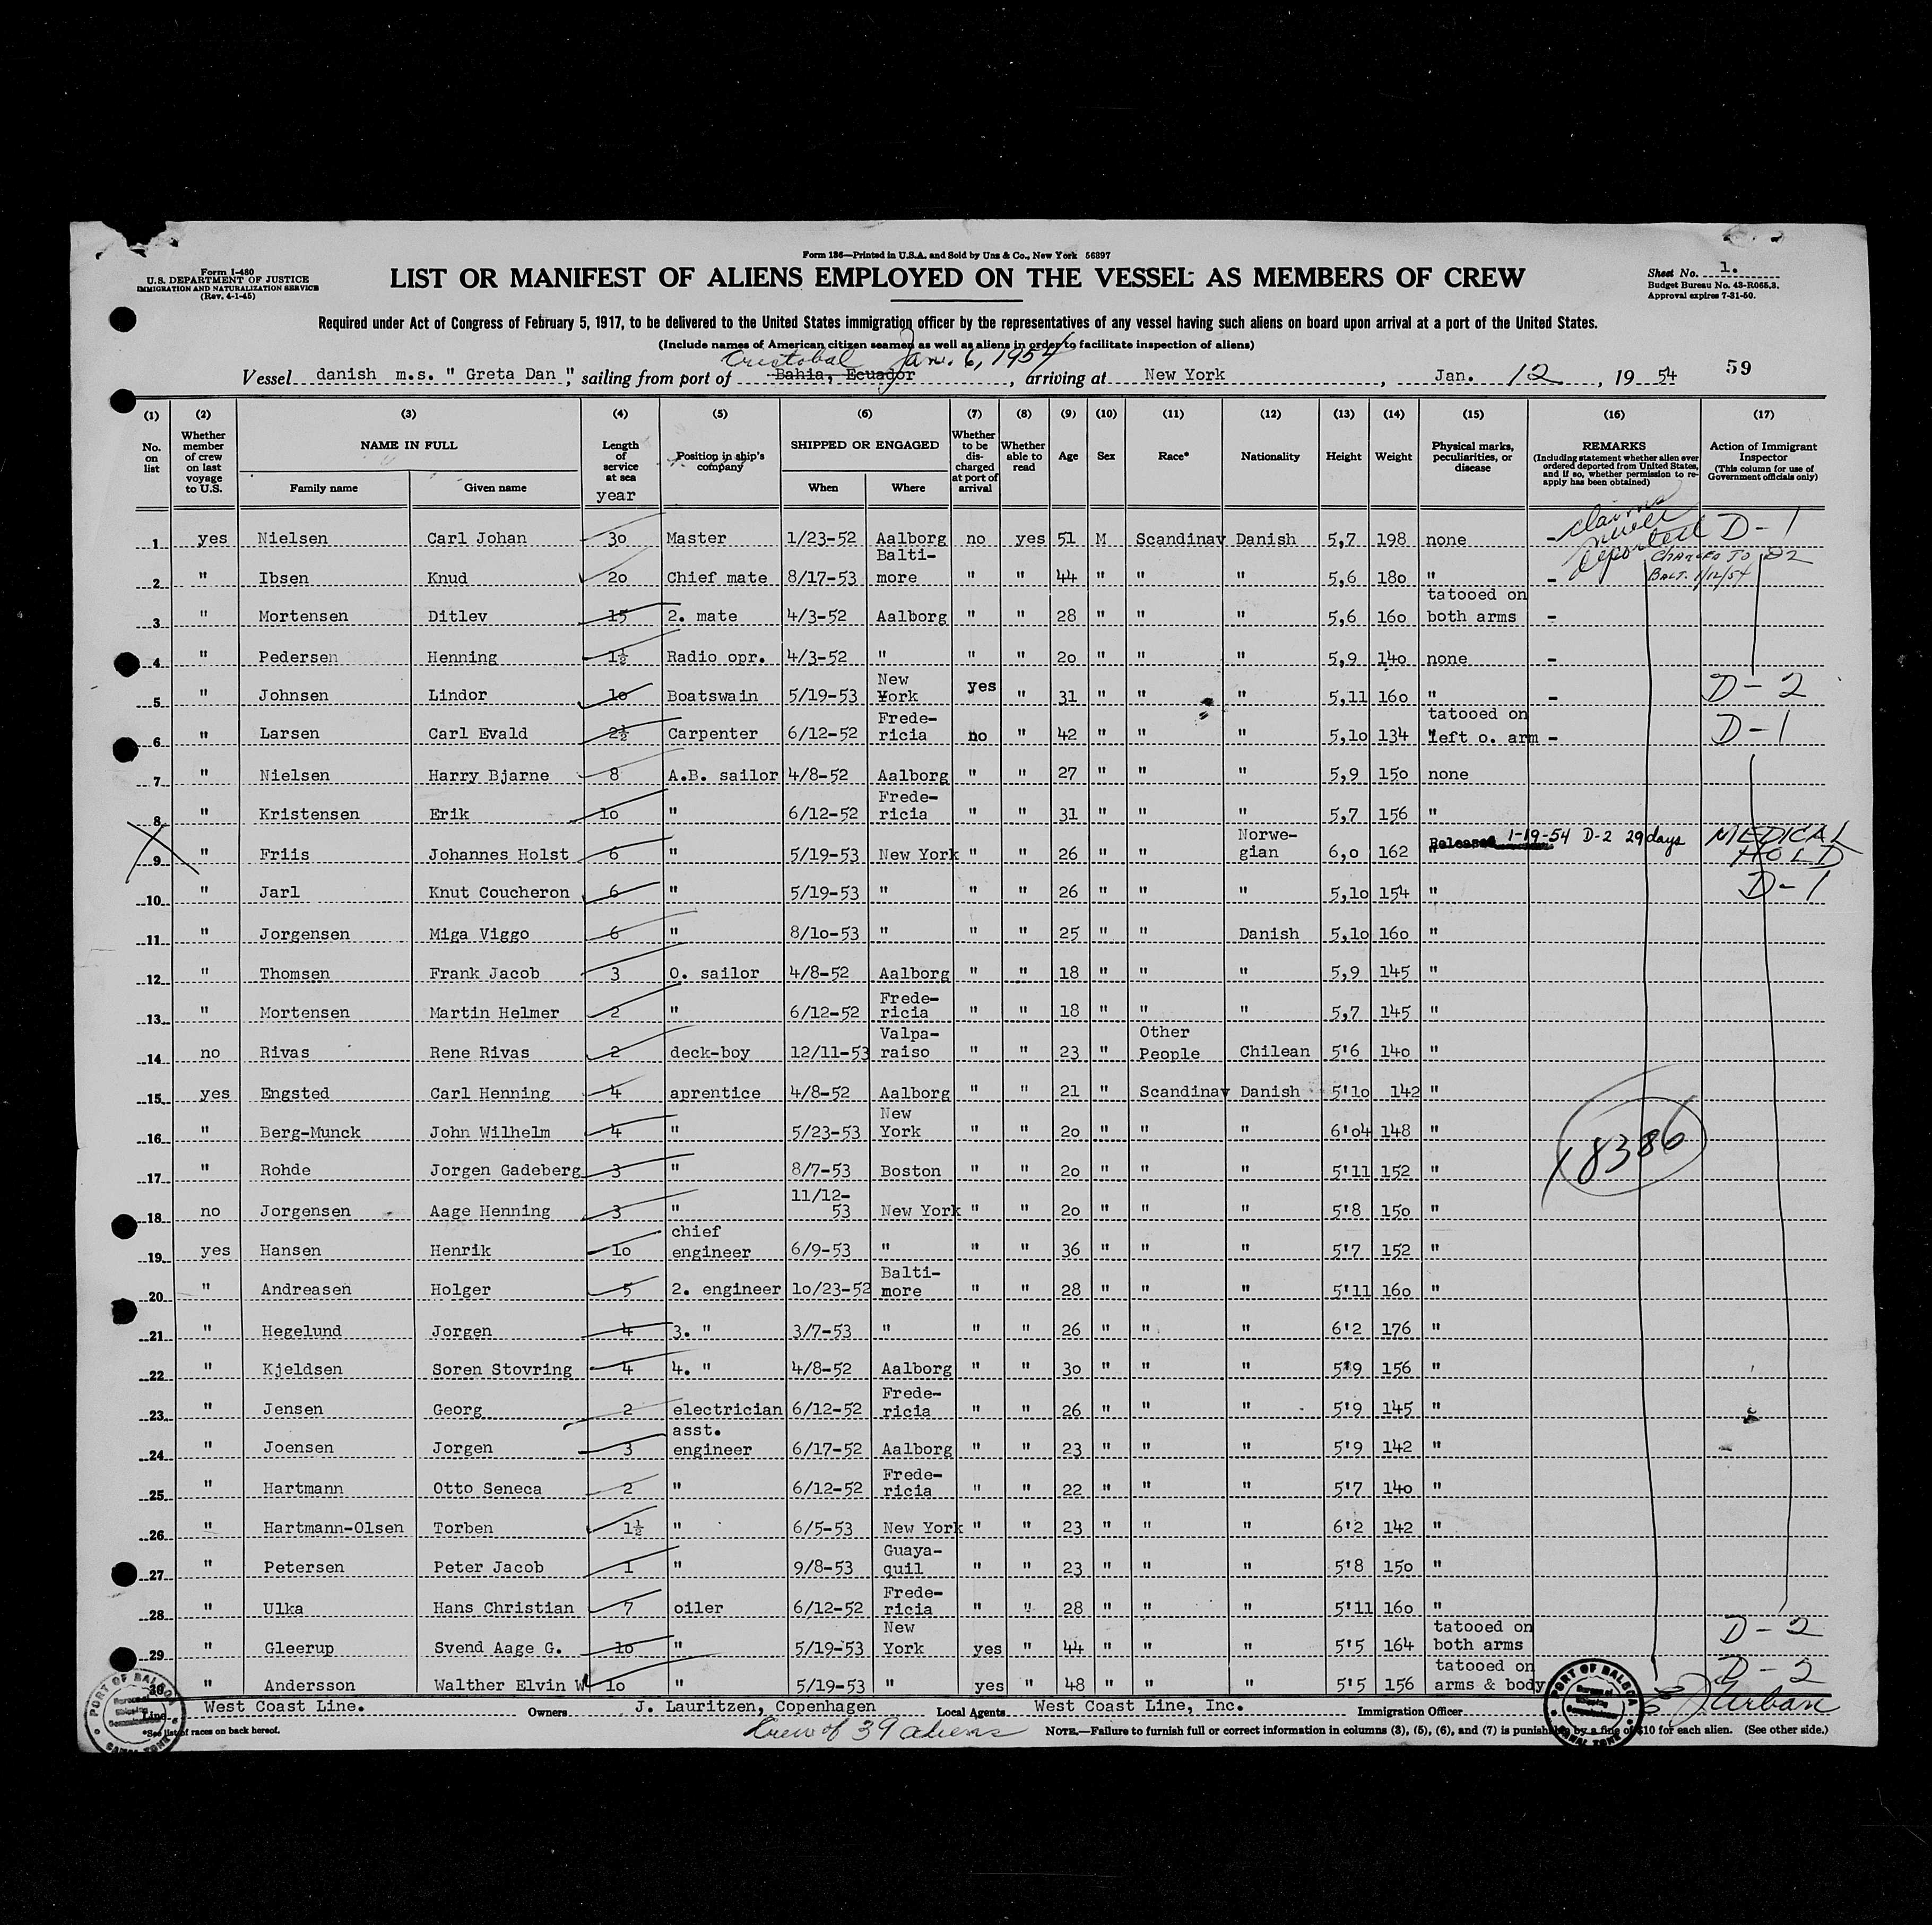 Form 136—Printed in U.S.A. and Sold by Unz & Co., New York 56897
Form I-480
U.S. DEPARTMENT OF JUSTICE
IMMIGRATION AND NATURALIZATION SERVICE
(Rev. 4-1-45)
LIST OR MANIFEST OF ALIENS EMPLOYED ON THE VESSEL AS MEMBERS OF CREW
Sheet No. 1.
Budget Bureau No. 43-R065.3.
Approval expires 7-31-50.
Required under Act of Congress of February 5, 1917, to be delivered to the United States immigration officer by the representatives of any vessel having such aliens on board upon arrival at a port of the United States.
(Include names of American citizen seamen as well as aliens in order to facilitate inspection of aliens)
Cristobal Jan. 6, 1954
Vessel danish m.s. " Greta Dan ", sailing from port of Bahia, Ecuador, arriving at New York, Jan. 12, 19 54
59
(1) (2) (3) (4) (5) (6) (7) (8) (9) (10) (11) (12) (13) (14) (15) (16) (17)
No. on list
Whether member of crew on last voyage to U.S.
NAME IN FULL
Family name Given name
Length of service at sea
year
Position in ship's company
SHIPPED OR ENGAGED
When Where
Whether to be discharged at port of arrival
Whether able to read
Age
Sex
Race*
Nationality
Height
Weight
Physical marks, peculiarities, or disease
REMARKS
(Including statement whether alien ever ordered deported from United States, and if so, whether permission to reapply has been obtained)
Action of Immigrant Inspector
(This column for use of Government officials only)
1 yes Nielsen Carl Johan 30 Master 1/23-52 Aalborg no yes 51 M Scandinav Danish 5,7 198 none - claims never deported D-1
2 " Ibsen Knud 20 Chief mate 8/17-53 Balti-more " " 44 " " " 5,6 180 " - CHANGED TO D2 BALT. 1/12/54
3 " Mortensen Ditlev 15 2. mate 4/3-52 Aalborg " " 28 " " " 5,6 160 tatooed on both arms -
4 " Pedersen Henning 1½ Radio opr. 4/3-52 " " " 20 " " " 5,9 140 none -
5 " Johnsen Lindor 10 Boatswain 5/19-53 New York yes " 31 " " " 5,11 160 " - D-2
6 " Larsen Carl Evald 2½ Carpenter 6/12-52 Frede-ricia no " 42 " " " 5,10 134 tatooed on left o. arm - D-1
7 " Nielsen Harry Bjarne 8 A.B. sailor 4/8-52 Aalborg " " 27 " " " 5,9 150 none
8 " Kristensen Erik 10 " 6/12-52 Frede-ricia " " 31 " " " 5,7 156 "
9 " Friis Johannes Holst 6 " 5/19-53 New York " " 26 " " Norwe-gian 6,0 162 " Released 1-19-54 D-2 29 days MEDICAL HOLD
10 " Jarl Knut Coucheron 6 " 5/19-53 " " " 26 " " " 5,10 154 " D-1
11 " Jorgensen Miga Viggo 6 " 8/10-53 " " " 25 " " Danish 5,10 160 "
12 " Thomsen Frank Jacob 3 O. sailor 4/8-52 Aalborg " " 18 " " " 5,9 145 "
13 " Mortensen Martin Helmer 2 " 6/12-52 Frede-ricia " " 18 " " " 5,7 145 "
14 no Rivas Rene Rivas 2 deck-boy 12/11-53 Valpa-raiso " " 23 " Other People Chilean 5'6 140 "
15 yes Engsted Carl Henning 4 aprentice 4/8-52 Aalborg " " 21 " Scandinav Danish 5'10 142 "
16 " Berg-Munck John Wilhelm 4 " 5/23-53 New York " " 20 " " " 6'04 148 "
17 " Rohde Jorgen Gadeberg 3 " 8/7-53 Boston " " 20 " " " 5'11 152 "
18386
18 no Jorgensen Aage Henning 3 " 11/12-53 New York " " 20 " " " 5'8 150 "
19 yes Hansen Henrik 10 chief engineer 6/9-53 " " " 36 " " " 5'7 152 "
20 " Andreasen Holger 5 2. engineer 10/23-52 Balti-more " " 28 " " " 5'11 160 "
21 " Hegelund Jorgen 4 3. " 3/7-53 " " " 26 " " " 6'2 176 "
22 " Kjeldsen Soren Stovring 4 4. " 4/8-52 Aalborg " " 30 " " " 5'9 156 "
23 " Jensen Georg 2 electrician 6/12-52 Frede-ricia " " 26 " " " 5'9 145 "
24 " Joensen Jorgen 3 asst. engineer 6/17-52 Aalborg " " 23 " " " 5'9 142 "
25 " Hartmann Otto Seneca 2 " 6/12-52 Frede-ricia " " 22 " " " 5'7 140 "
26 " Hartmann-Olsen Torben 1½ " 6/5-53 New York " " 23 " " " 6'2 142 "
27 " Petersen Peter Jacob 1 " 9/8-53 Guaya-quil " " 23 " " " 5'8 150 "
28 " Ulka Hans Christian 7 oiler 6/12-52 Frede-ricia " " 28 " " " 5'11 160 "
29 " Gleerup Svend Aage G. 10 " 5/19-53 New York yes " 44 " " " 5'5 164 tatooed on both arms D-2
30 " Andersson Walther Elvin W 10 " 5/19-53 " yes " 48 " " " 5'5 156 tatooed on arms & body D-2
Line West Coast Line. Owners J. Lauritzen, Copenhagen Local Agents West Coast Line, Inc. Immigration Officer E J Urban
*See list of races on back hereof.
Crew of 39 aliens
NOTE.—Failure to furnish full or correct information in columns (3), (5), (6), and (7) is punishable by a fine of $10 for each alien. (See other side.)
PORT OF BALBOA
CANAL ZONE
PORT OF BALBOA
CANAL ZONE